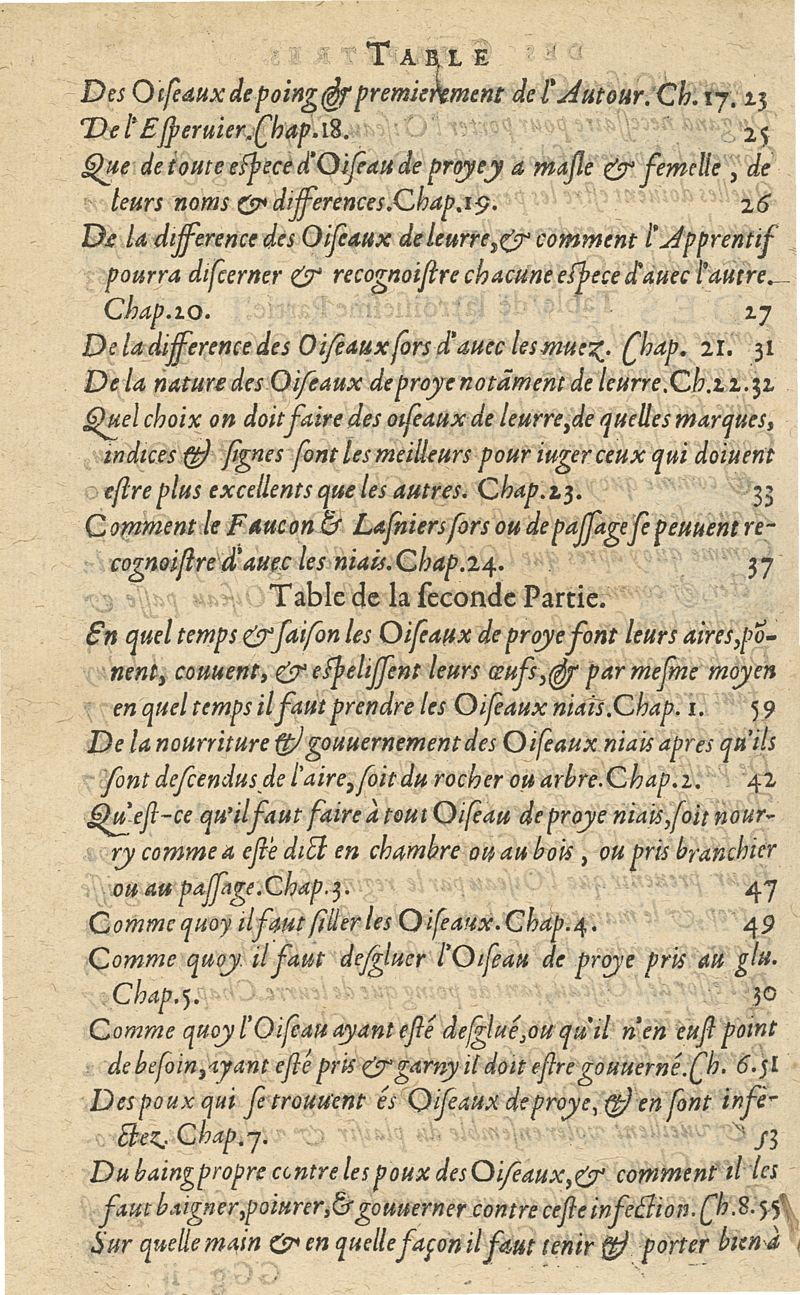 TABLE
Des Oiſeaux de poing & premierement de l'Autour. Ch. 17. 23
De l'Eſperuier. Chap. 18. 25
Que de toute eſpece d'Oiſeau de proye y a maſle & femelle, de
leurs noms & differences. Chap. 19. 26
De la difference des Oiſeaux de leurre, & comment l'Apprentif
pourra diſcerner & recognoiſtre chacune eſpece d'avec l'autre.
Chap. 20. 27
De la difference des Oiſeaux ſors d'avec les muez. Chap. 21. 31
De la nature des Oiſeaux de proye notāment de leurre. Ch. 22. 32
Quel choix on doit faire des oiſeaux de leurre, de quelles marques,
indices & ſignes ſont les meilleurs pour iuger ceux qui doiuent
eſtre plus excellents que les autres. Chap. 23. 33
Comment le Faucon & Laſniers ſors ou de paſſage ſe peuuent re-
cognoiſtre d'avec les niais. Chap. 24. 37
Table de la ſeconde Partie.
En quel temps & ſaiſon les Oiſeaux de proye font leurs aires, pō-
nent, couuent, & eſpeliſſent leurs œufs, & par meſme moyen
en quel temps il faut prendre les Oiſeaux niais. Chap. 1. 59
De la nourriture & gouuernement des Oiſeaux niais apres qu'ils
ſont deſcendus de l'aire, ſoit du rocher ou arbre. Chap. 2. 42
Qu'eſt-ce qu'il faut faire à tout Oiſeau de proye niais, ſoit nour-
ry comme a eſté dict en chambre ou au bois, ou pris branchier
ou au paſſage. Chap. 3. 47
Comme quoy il faut ſiller les Oiſeaux. Chap. 4. 49
Comme quoy il faut deſgluer l'Oiſeau de proye pris au glu.
Chap. 5. 30
Comme quoy l'Oiſeau ayant eſté deſglué, ou qu'il n'en euſt point
de beſoin, ayant eſté pris & garny il doit eſtre gouuerné. Ch. 6. 51
Des poux qui ſe trouuent és Oiſeaux de proye, & en ſont infe-
ctez. Chap. 7. 53
Du baing propre contre les poux des Oiſeaux, & comment il les
faut baigner, poiurer, & gouuerner contre ceſte infection. Ch. 8. 55
Sur quelle main & en quelle façon il faut tenir & porter bien à